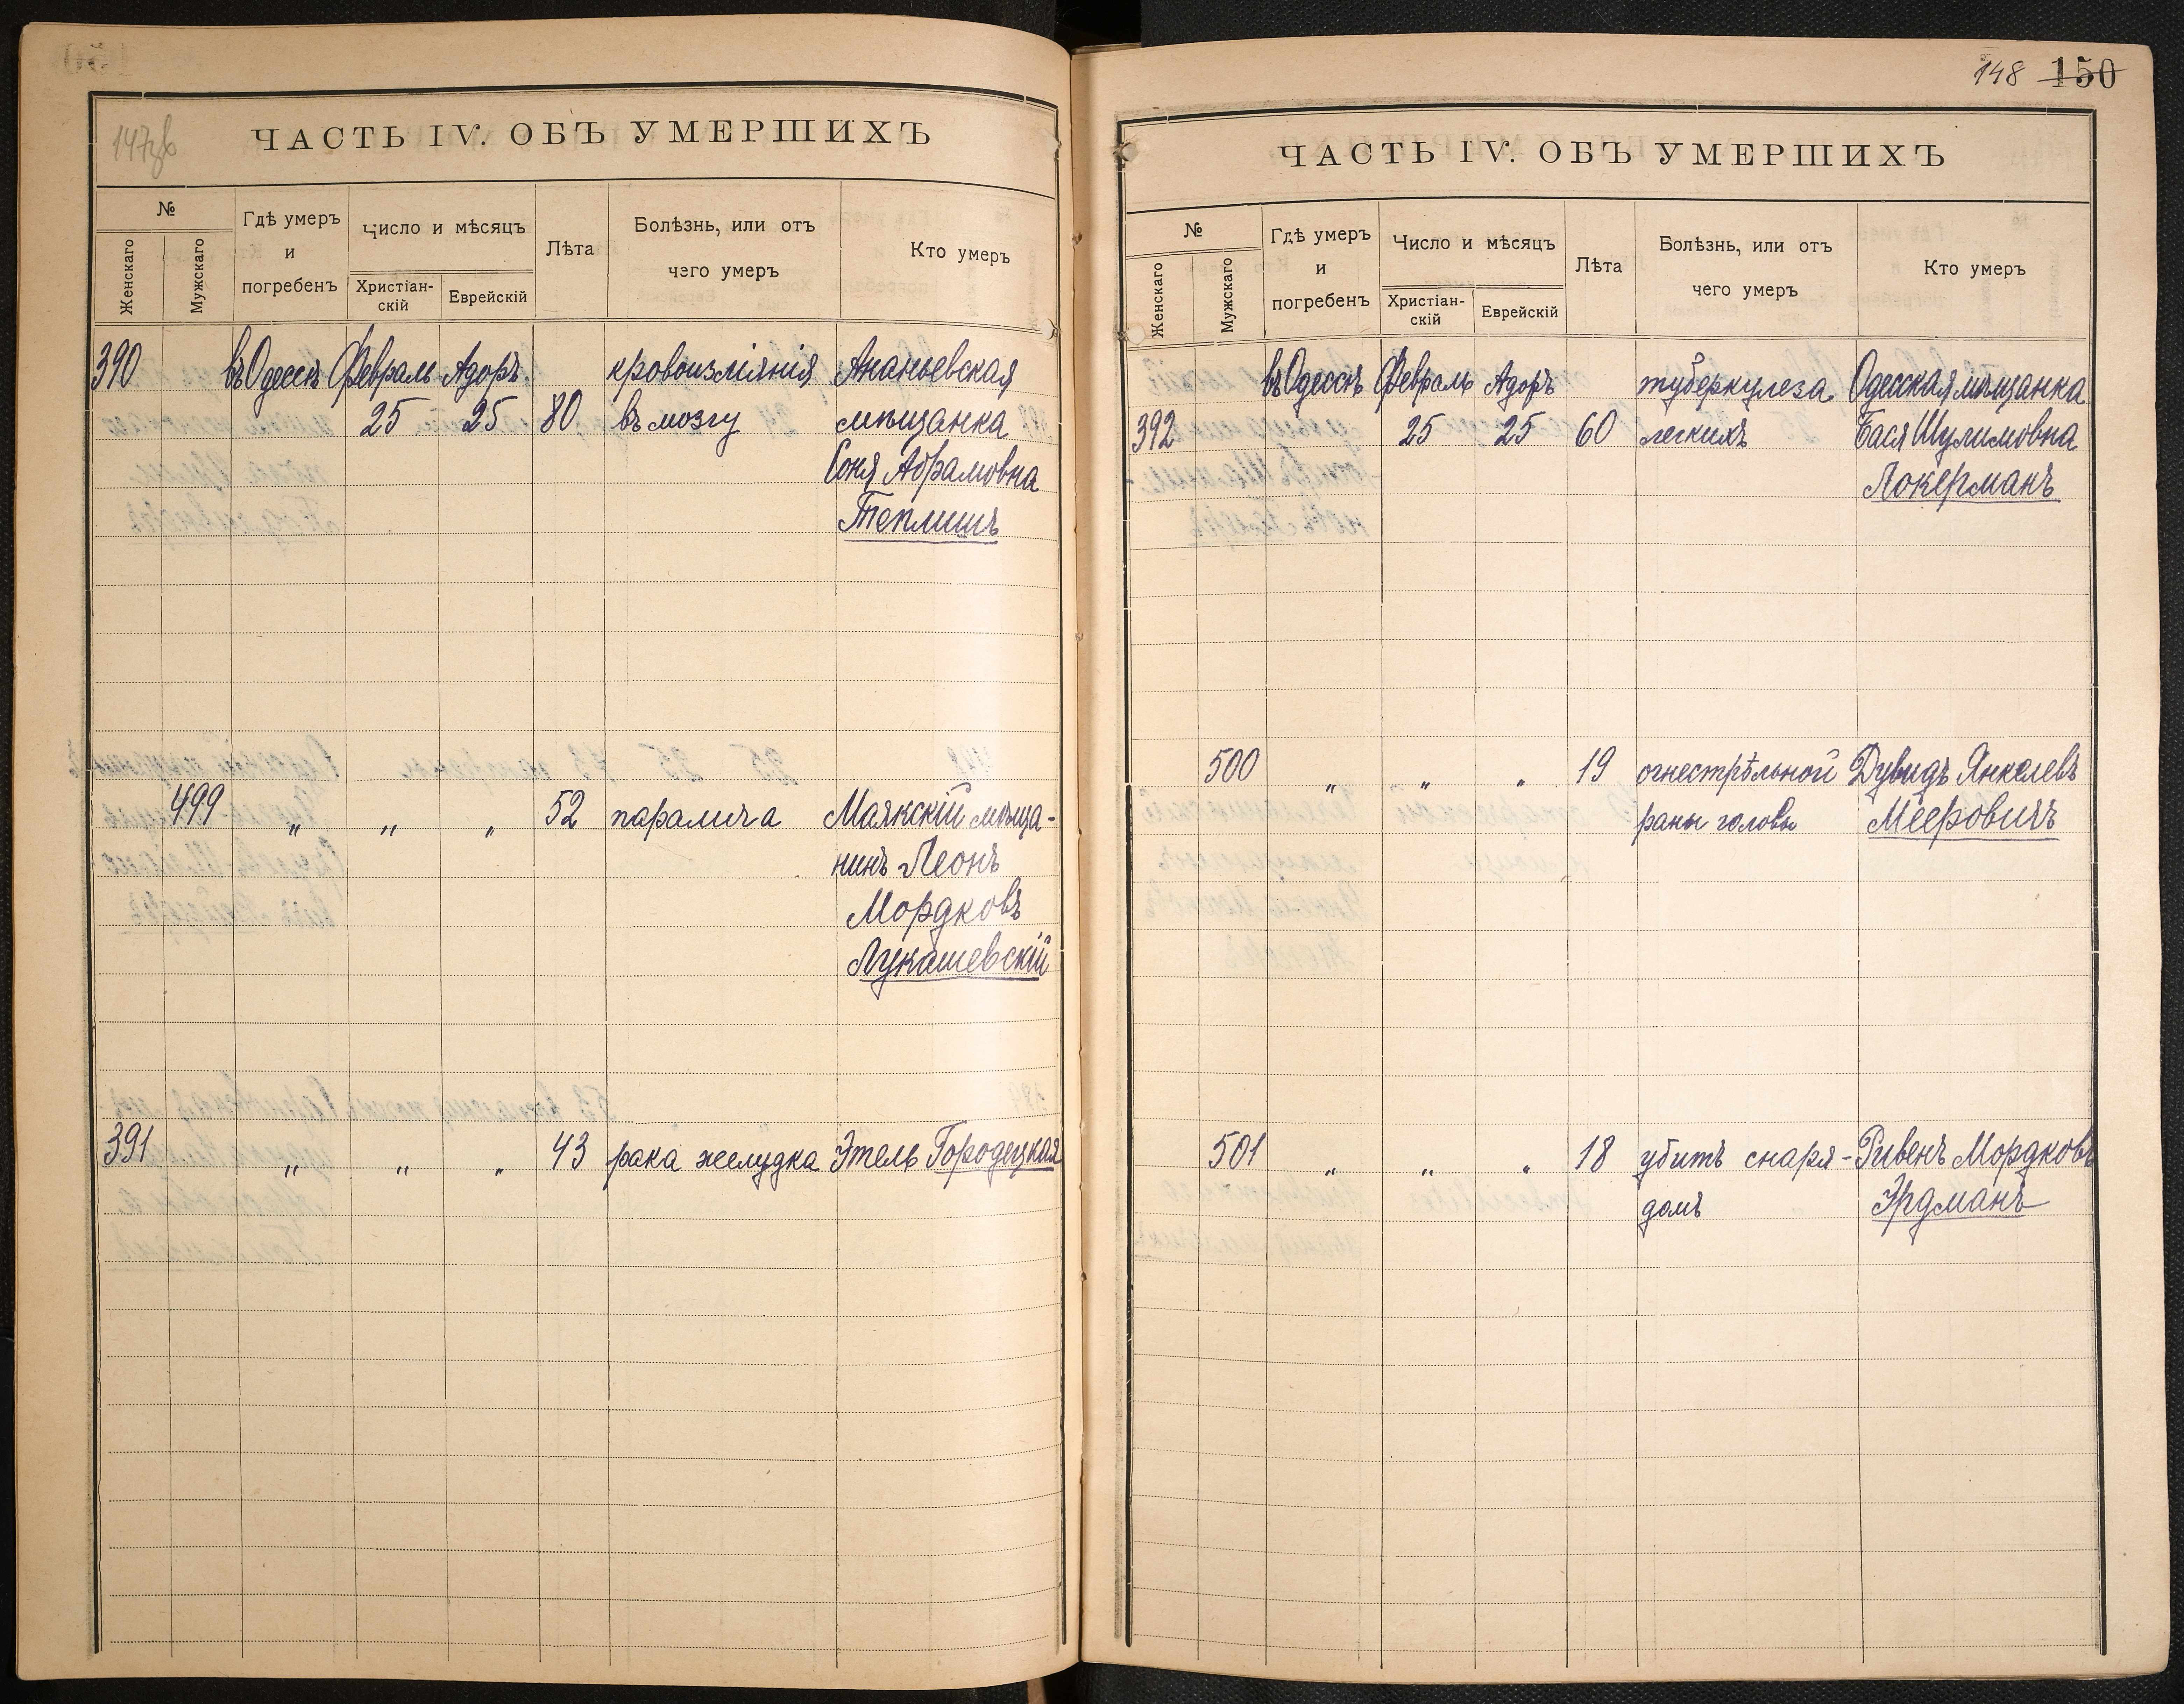 147зв
ЧАСТЬ IV. ОБЪ УМЕРШИХЪ
№
Женскаго
Мужскаго
Гдѣ умеръ
и
погребенъ
Число и мѣсяцъ
Христіан-
скій
Еврейскій
Лѣта
Болѣзнь, или отъ
чего умеръ
Кто умеръ
390 въ Одессѣ Февраль Адоръ кровоизліянія Ананьевская
25 25 80 въ мозгу мѣщанка
Соня Абрамовна
Теплишъ
499 „ „ „ 52 паралича Маякскій мѣща-
нинъ Леонъ
Мордковъ
Лукашевскій
391 „ „ „ 43 рака желудка Этель Городецкая
148 150
ЧАСТЬ IV. ОБЪ УМЕРШИХЪ
№
Женскаго
Мужскаго
Гдѣ умеръ
и
погребенъ
Число и мѣсяцъ
Христіан-
скій
Еврейскій
Лѣта
Болѣзнь, или отъ
чего умеръ
Кто умеръ
въ Одессѣ Февраль Адоръ туберкулеза Одесская мѣщанка
392 25 25 60 легкихъ Бася Шулимовна
Локерманъ
500 „ „ „ 19 огнестрѣльной Дувидъ Янкелевъ
раны головы Мееровичъ
501 „ „ „ 18 убитъ снаря- Рувенъ Мордковъ
домъ Эрдманъ